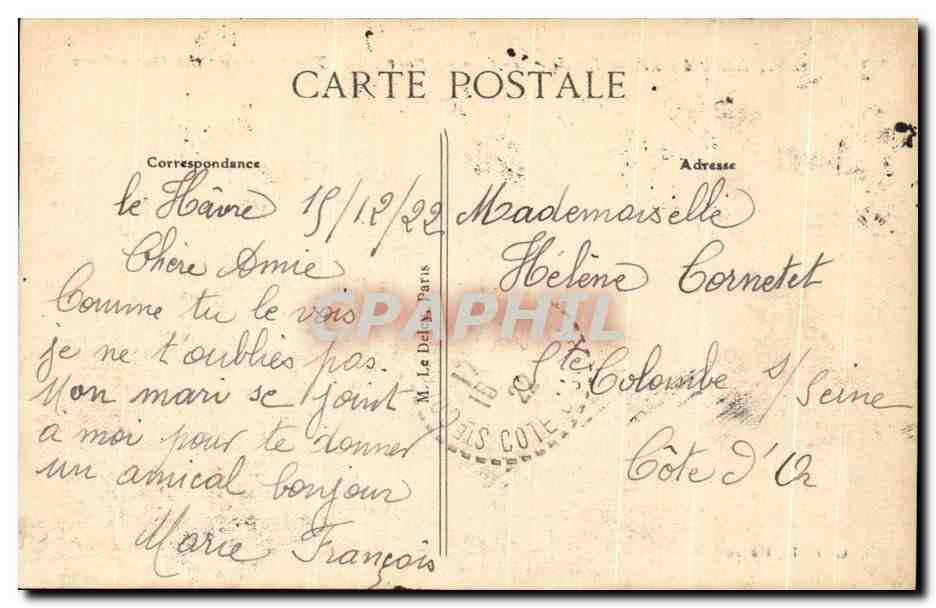 CARTE POSTALE
Correspondance
le Hâvre 15/12/22
Chère Amie
Comme tu le vois
je ne t'oublies pas.
Mon mari se joint
a moi pour te donner
un amical bonjour
Marie François
M. Le Deley, Paris
Adresse
Mademoiselle
Hélène Cornetet
Ste Colombe s/ Seine
Côte d'Or
CPAPHIL
STE CO
COTE
16
22